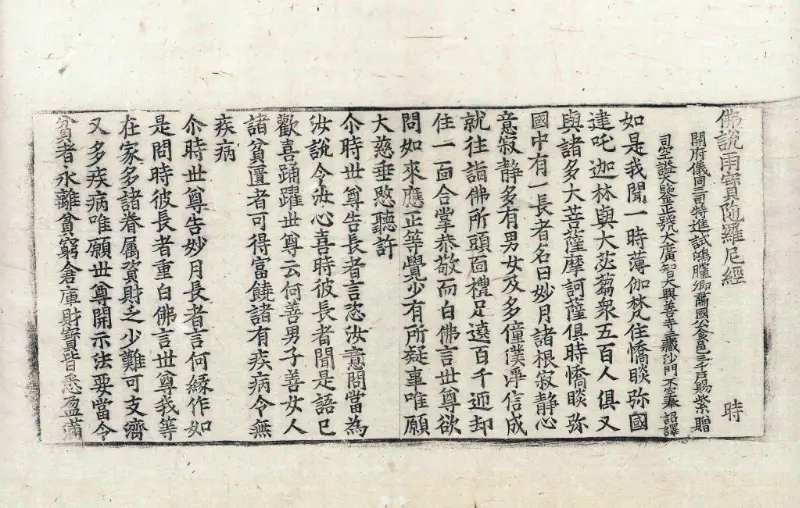 佛說雨寶陁羅尼經　時
開府儀同三司特進試鴻臚卿肅國公食邑三千戶賜紫贈
司空謚大鑒正號大廣智大興善寺三藏沙門不空奉 詔譯
如是我聞一時薄伽梵住憍睒弥國
建吒迦林與大苾蒭衆五百人俱又
與諸多大菩薩摩訶薩俱時憍睒弥
國中有一長者名曰妙月諸根寂静心
意寂静多有男女及多僮僕淨信成
就往詣佛所頭面禮足遶百千迊却
住一面合掌恭敬而白佛言世尊欲
問如來應正等覺少有所疑事唯願
大慈垂愍聽許
尒時世尊告長者言恣汝意問當為
汝說令汝心喜時彼長者聞是語已
歡喜踊躍世尊云何善男子善女人
諸貧匱者可得富饒諸有疾病令無
疾病
尒時世尊告妙月長者言何緣作如
是問時彼長者重白佛言世尊我等
在家多諸眷属資財乏少難可支濟
又多疾病唯願世尊開示法要當令
貧者永離貧窮倉庫財寶皆悉盈滿